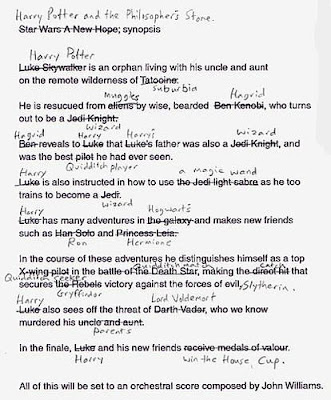 Harry Potter and the Philosopher's Stone.
Star Wars A New Hope; synopsis
Harry Potter
Luke Skywalker is an orphan living with his uncle and aunt
on the remote wilderness of Tatooine.
suburbia
muggles Hagrid
He is resucued from aliens by wise, bearded Ben Kenobi, who turns
out to be a Jedi Knight.
wizard
Hagrid Harry Harry's wizard
Ben reveals to Luke that Luke's father was also a Jedi Knight, and
was the best pilot he had ever seen.
Quidditch player
Harry a magic wand
Luke is also instructed in how to use the jedi light sabre as he too
trains to become a Jedi.
wizard
Harry Hogwarts
Luke has many adventures in the galaxy and makes new friends
such as Han Solo and Princess Leia.
Ron Hermione
In the course of these adventures he distinguishes himself as a top
Quidditch match catch
X-wing pilot in the battle of the Death Star, making the direct hit that
Quidditch seeker
secures the Rebels victory against the forces of evil, Slytherin.
Gryffindor
Harry Lord Voldemort
Luke also sees off the threat of Darth Vador, who we know
murdered his uncle and aunt.
parents
In the finale, Luke and his new friends receive medals of valour.
Harry win the House Cup.
All of this will be set to an orchestral score composed by John Williams.